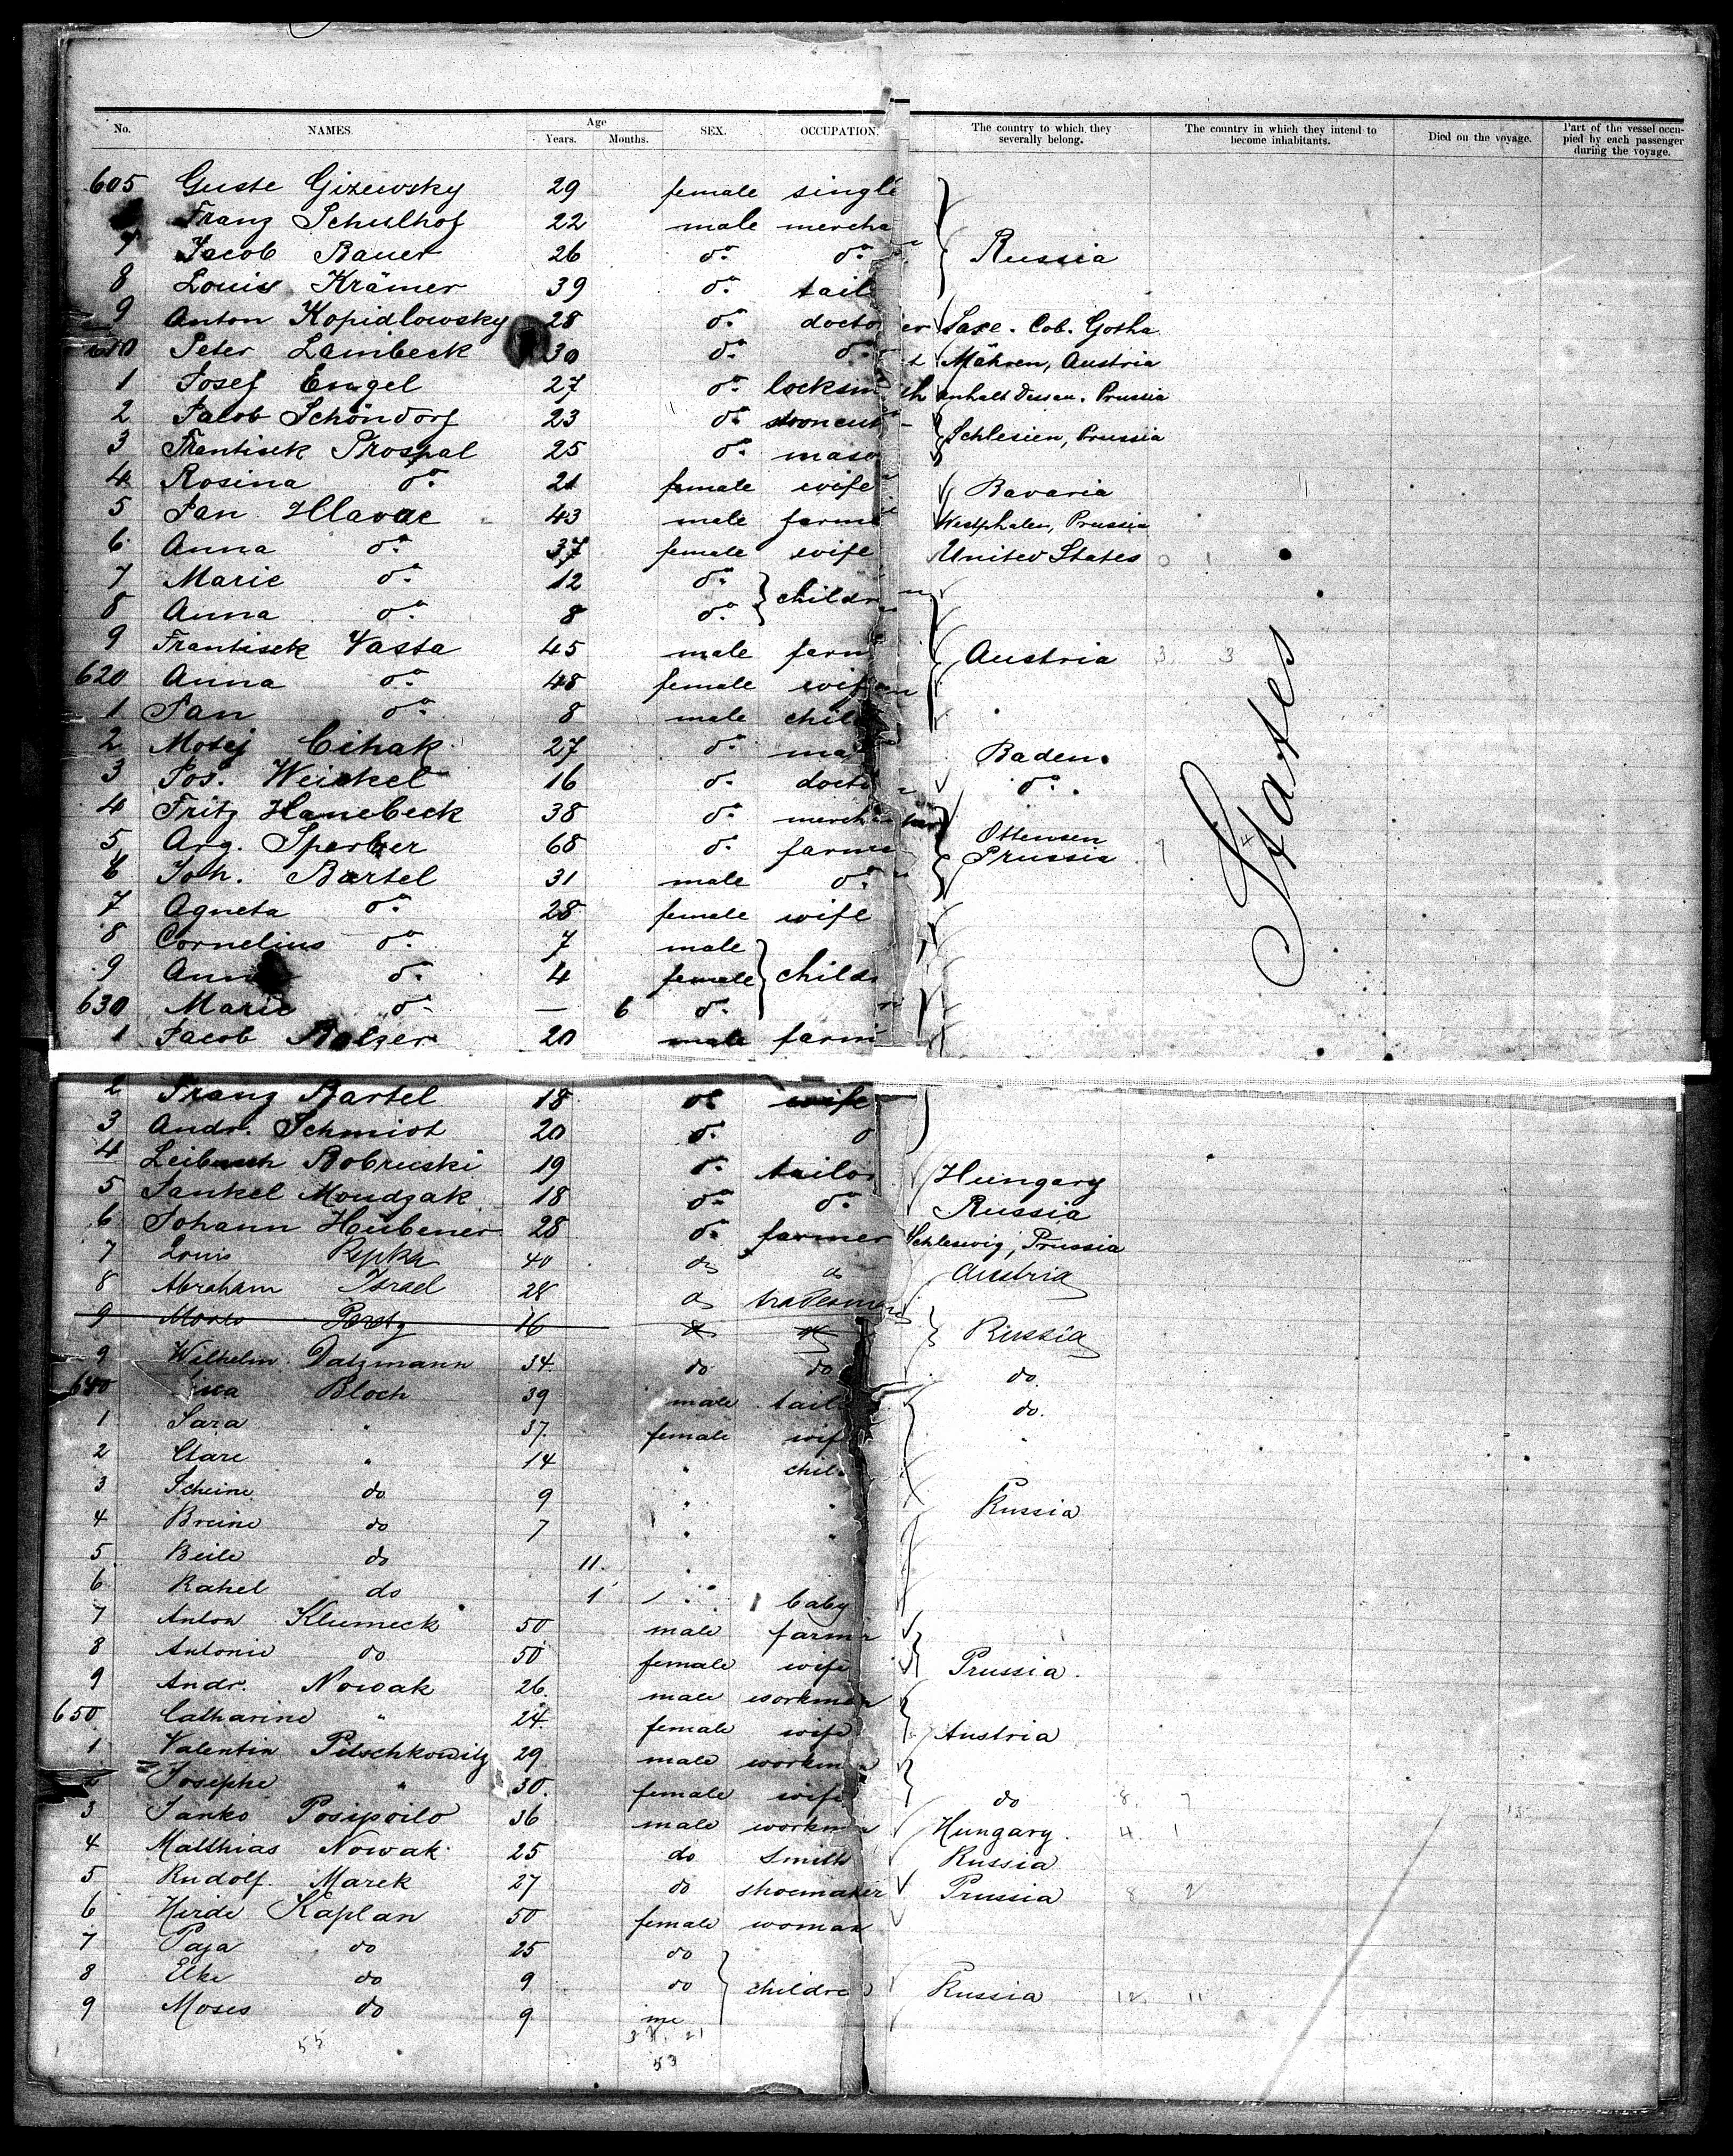 No. NAMES. Age Years. Months. SEX. OCCUPATION. The country to which they severally belong. The country in which they intend to become inhabitants. Died on the voyage. Part of the vessel occupied by each passenger during the voyage.
605 Guste Gizewsky 29 female single
Franz Schulhof 22 male mercha
7 Jacob Bauer 26 do. do. Russia
8 Louis Krämer 39 do. tail
9 Anton Kopidlowsky 28 do. docto Saxe. Cob. Gotha
610 Peter Lambeck 30 do. do. Mähren, Austria
1 Josef Engel 27 do. locksmith Anhalt Dessau. Prussia
2 Jacob Schöndorf 23 do. Schlesien, Prussia
3 Frantisek Prospal 25 do. maso
4 Rosina do. 21 female wife Bavaria
5 Jan Hlavac 43 male farme Westphalen, Prussia
6 Anna do. 37 female wife United States 0 1
7 Marie do. 12 do. childr
8 Anna do. 8 do.
9 Frantisek Vasta 45 male farm Austria 3 3
620 Anna do. 48 female wif
1 Jan do. 8 male chil
2 Matej Cihak 27 do. ma Baden.
3 Jos. Weickel 16 do. docto do.
4 Fritz Hanebeck 38 do. merch Ottensen
5 Aug. Sperber 68 do. farme Prussia
6 Joh. Bartel 31 male do. States
7 Agneta do. 28 female wife
8 Cornelius do. 7 male
9 Anna do. 4 female child
630 Marie do. — 6 do.
1 Jacob Balzer 20 male farm
2 Franz Bartel 18 do wife
3 Andr. Schmidt 20 do.
4 Leibusch Bobrucski 19 do. tailo Hungary
5 Jankel Moudzak 18 do. do. Russia
6 Johann Hübener 28 do. farmer Schleswig, Prussia
7 Louis Repka 40 do do Austria
8 Abraham Israel 28 do tradesman
9 Moses Peretz 16 do do Russia
9 Wilhelm Datzmann 34 do do do.
640 Bloch 39 male tail do.
1 Sara " 37. female wif "
2 Clare " 14 " chil
3 Scheine do 9 " " Russia
4 Breine do 7 " "
5. Beile do 11. "
6 Rahel do 1 " baby
7 Anton Klumeck 50 male farmer
8 Antonie do 50 female wife Prussia.
9 Andr. Nowak 26. male workman
650 Catharine " 24. female wife Austria
1 Valentin Pitschkowitz 29 male workman
2 Josephe " 30. female wife do 8. 7
3 Janko Posipoilo 36 male workman Hungary. 4 1
4 Matthias Nowak 25 do Smith Russia
5 Rudolf Marek 27 do shoemaker Prussia 8 2
6 Hirde Kaplan 50 female woman
7 Paja do 25 do
8 Elke do 9 do children Russia 12. 11
9 Moses do 9 me
55
53